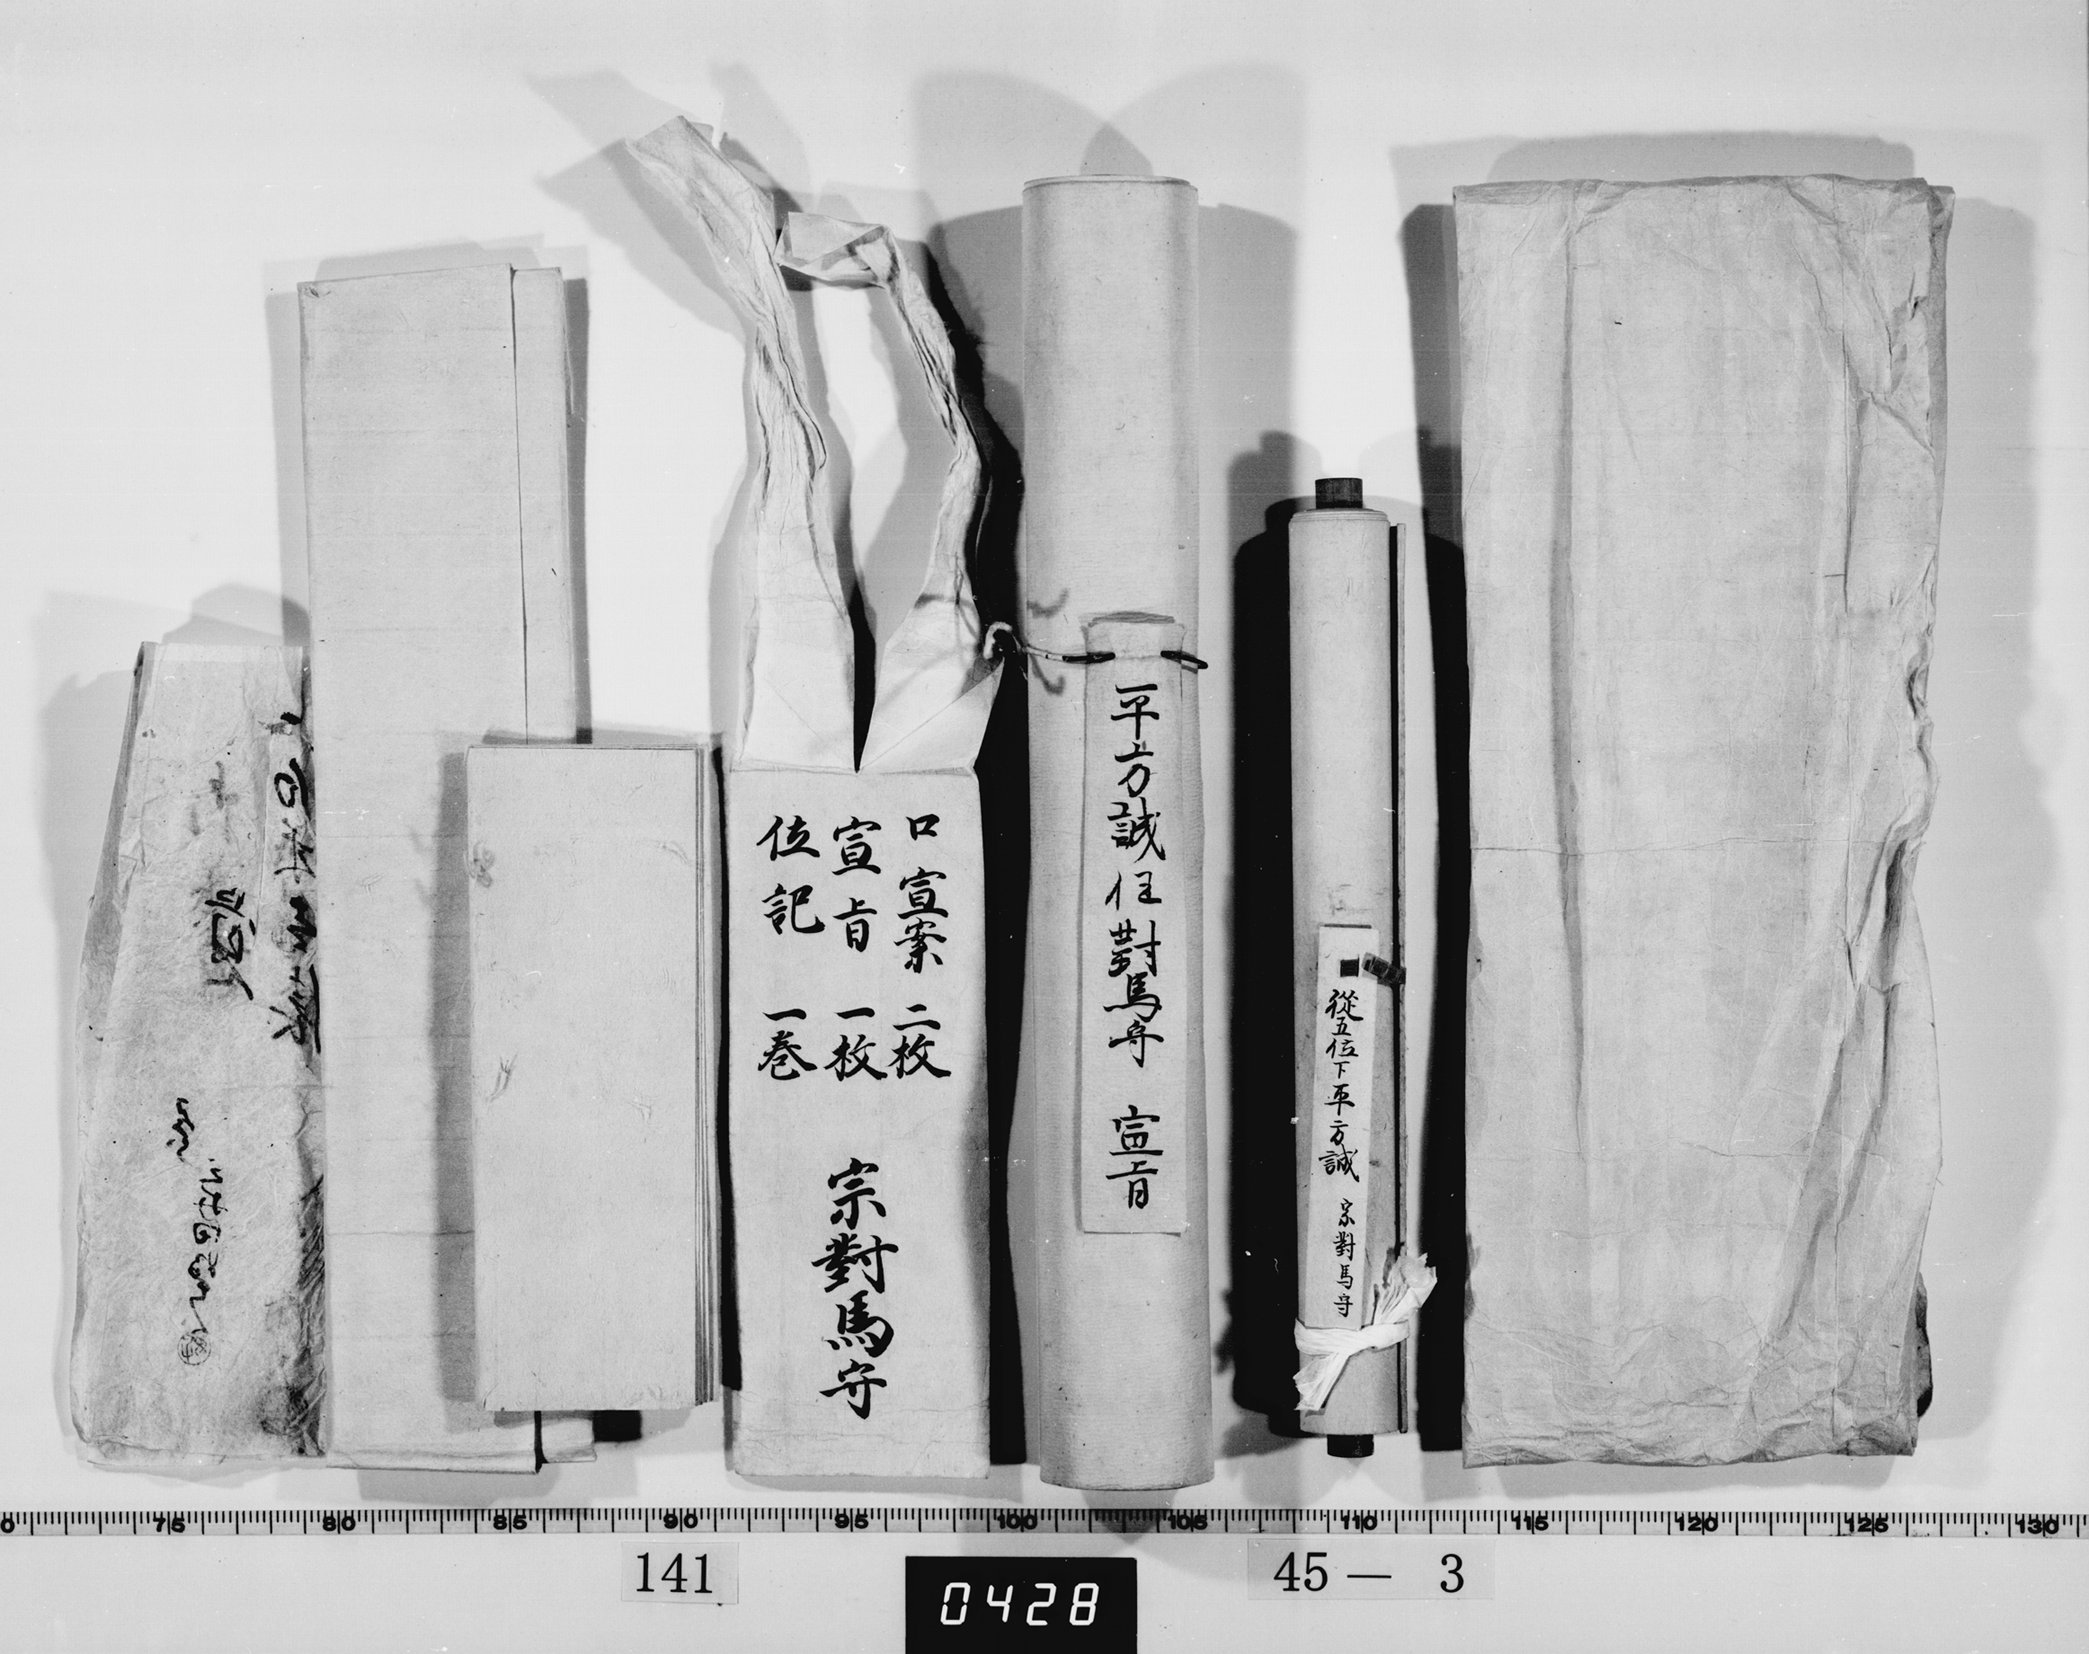 從五位下平方誠 宗對馬守
平方誠任對馬守 宣旨
口宣案 二枚
宣旨 一枚
位記 一巻
宗對馬守
0 75 80 85 90 95 100 105 110 115 120 125 130
141
0428
45 — 3